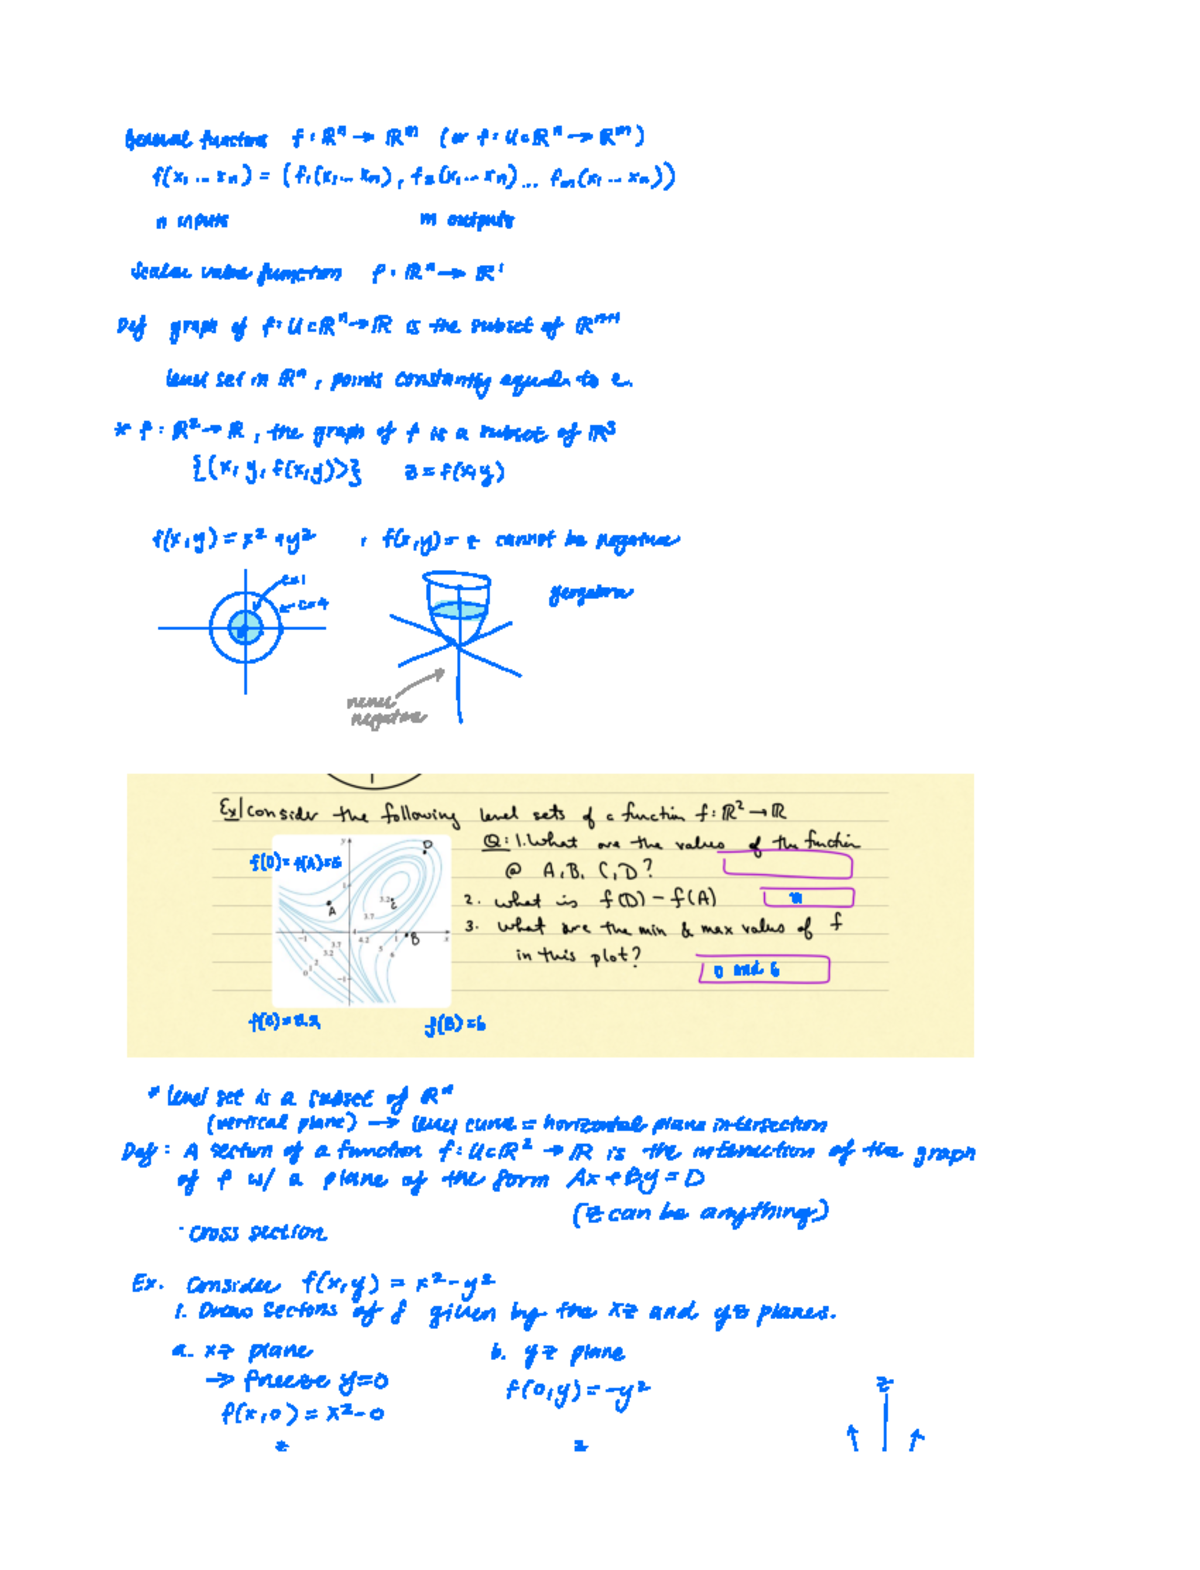 General functions f: ℝⁿ → ℝᵐ (or f: U⊂ℝⁿ → ℝᵐ)
f(x₁ ... xₙ) = (f₁(x₁... xₙ), f₂(x₁ ... xₙ) ... fₘ(x₁ ... xₙ))
n inputs m outputs
Scalar value function f: ℝⁿ → ℝ¹
Def graph of f: U⊂ℝⁿ → ℝ is the subset of ℝⁿ⁺¹
level set in ℝⁿ, points constantly equals to c.
* f: ℝ² → ℝ, the graph of f is a subset of ℝ³
{(x, y, f(x,y))} z = f(x,y)
f(x,y) = x² + y² , f(x,y) = z cannot be negative
c=1
c=4
geogebra
never
negative
Ex| Consider the following level sets of a function f: ℝ² → ℝ
Q: 1. What are the values of the function
@ A, B, C, D?
2. What is f(D) − f(A)
3. What are the min & max values of f
in this plot?
0 and 6
f(D) = f(A) =
y
D
1
A
3.2
C
3.7
−1
4
4.2
1
B
x
3.7
3.2
2
1
0
5
6
−1
f(B) = 6
* level set is a subset of ℝⁿ
(vertical plane) → level curve = horizontal plane intersection
Def: A section of a function f: U⊂ℝ² → ℝ is the intersection of the graph
of f w/ a plane of the form Ax + By = D
(z can be anything)
· cross section
Ex. Consider f(x,y) = x² − y²
1. Draw sections of f given by the xz and yz planes.
a. xz plane b. yz plane
→ freeze y=0 f(0,y) = −y²
f(x,0) = x² − 0
z z z